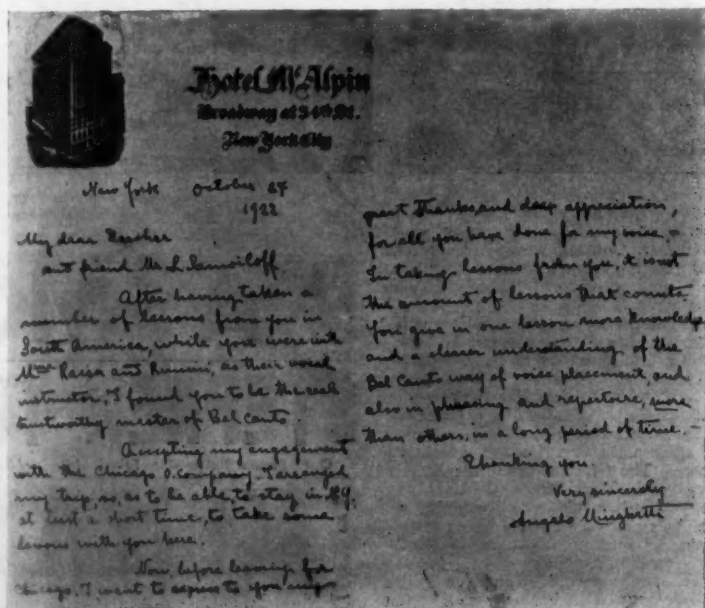 Hotel McAlpin
Broadway at 34th St.
New York City
New York October 27
1922
My dear Teacher
and friend Mr. L. Samoiloff
After having taken a
number of lessons from you in
South America, while you were with
Mme Raisa and Rimini, as their vocal
instructor, I found you to be the real
trustworthy master of Bel Canto.
Accepting my engagement
with the Chicago O. Company. I arranged
my trip, so, as to be able to stay in N.Y.
at least a short time, to take some
lessons with you here.
Now, before leaving for
Chicago, I want to express to you my
great thanks and deep appreciation,
for all you have done for my voice. -
In taking lessons from you, it is not
the amount of lessons that counts.
You give in one lesson more knowledge
and a clearer understanding of the
Bel Canto way of voice placement, and
also in phrasing and repertoire, more
than others, in a long period of time. -
Thanking you.
Very sincerely
Angelo Minghetti